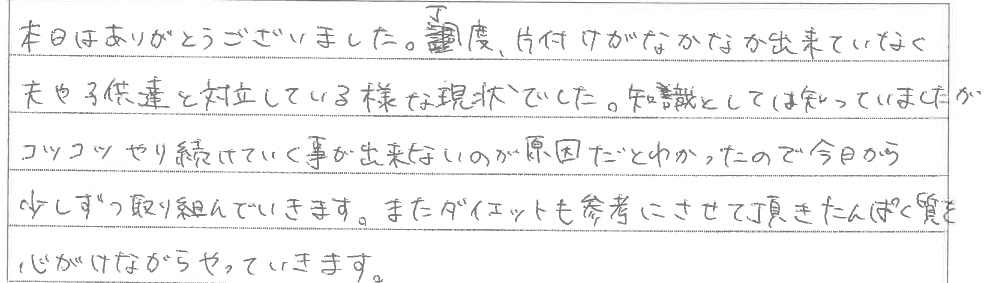 本日はありがとうございました。丁度、片付けがなかなか出来ていなく
夫や子供達と対立している様な現状でした。知識としては知っていましたが
コツコツやり続けていく事が出来ないのが原因だとわかったので今日から
少しずつ取り組んでいきます。またダイエットも参考にさせて頂きたんぱく質を
心がけながらやっていきます。